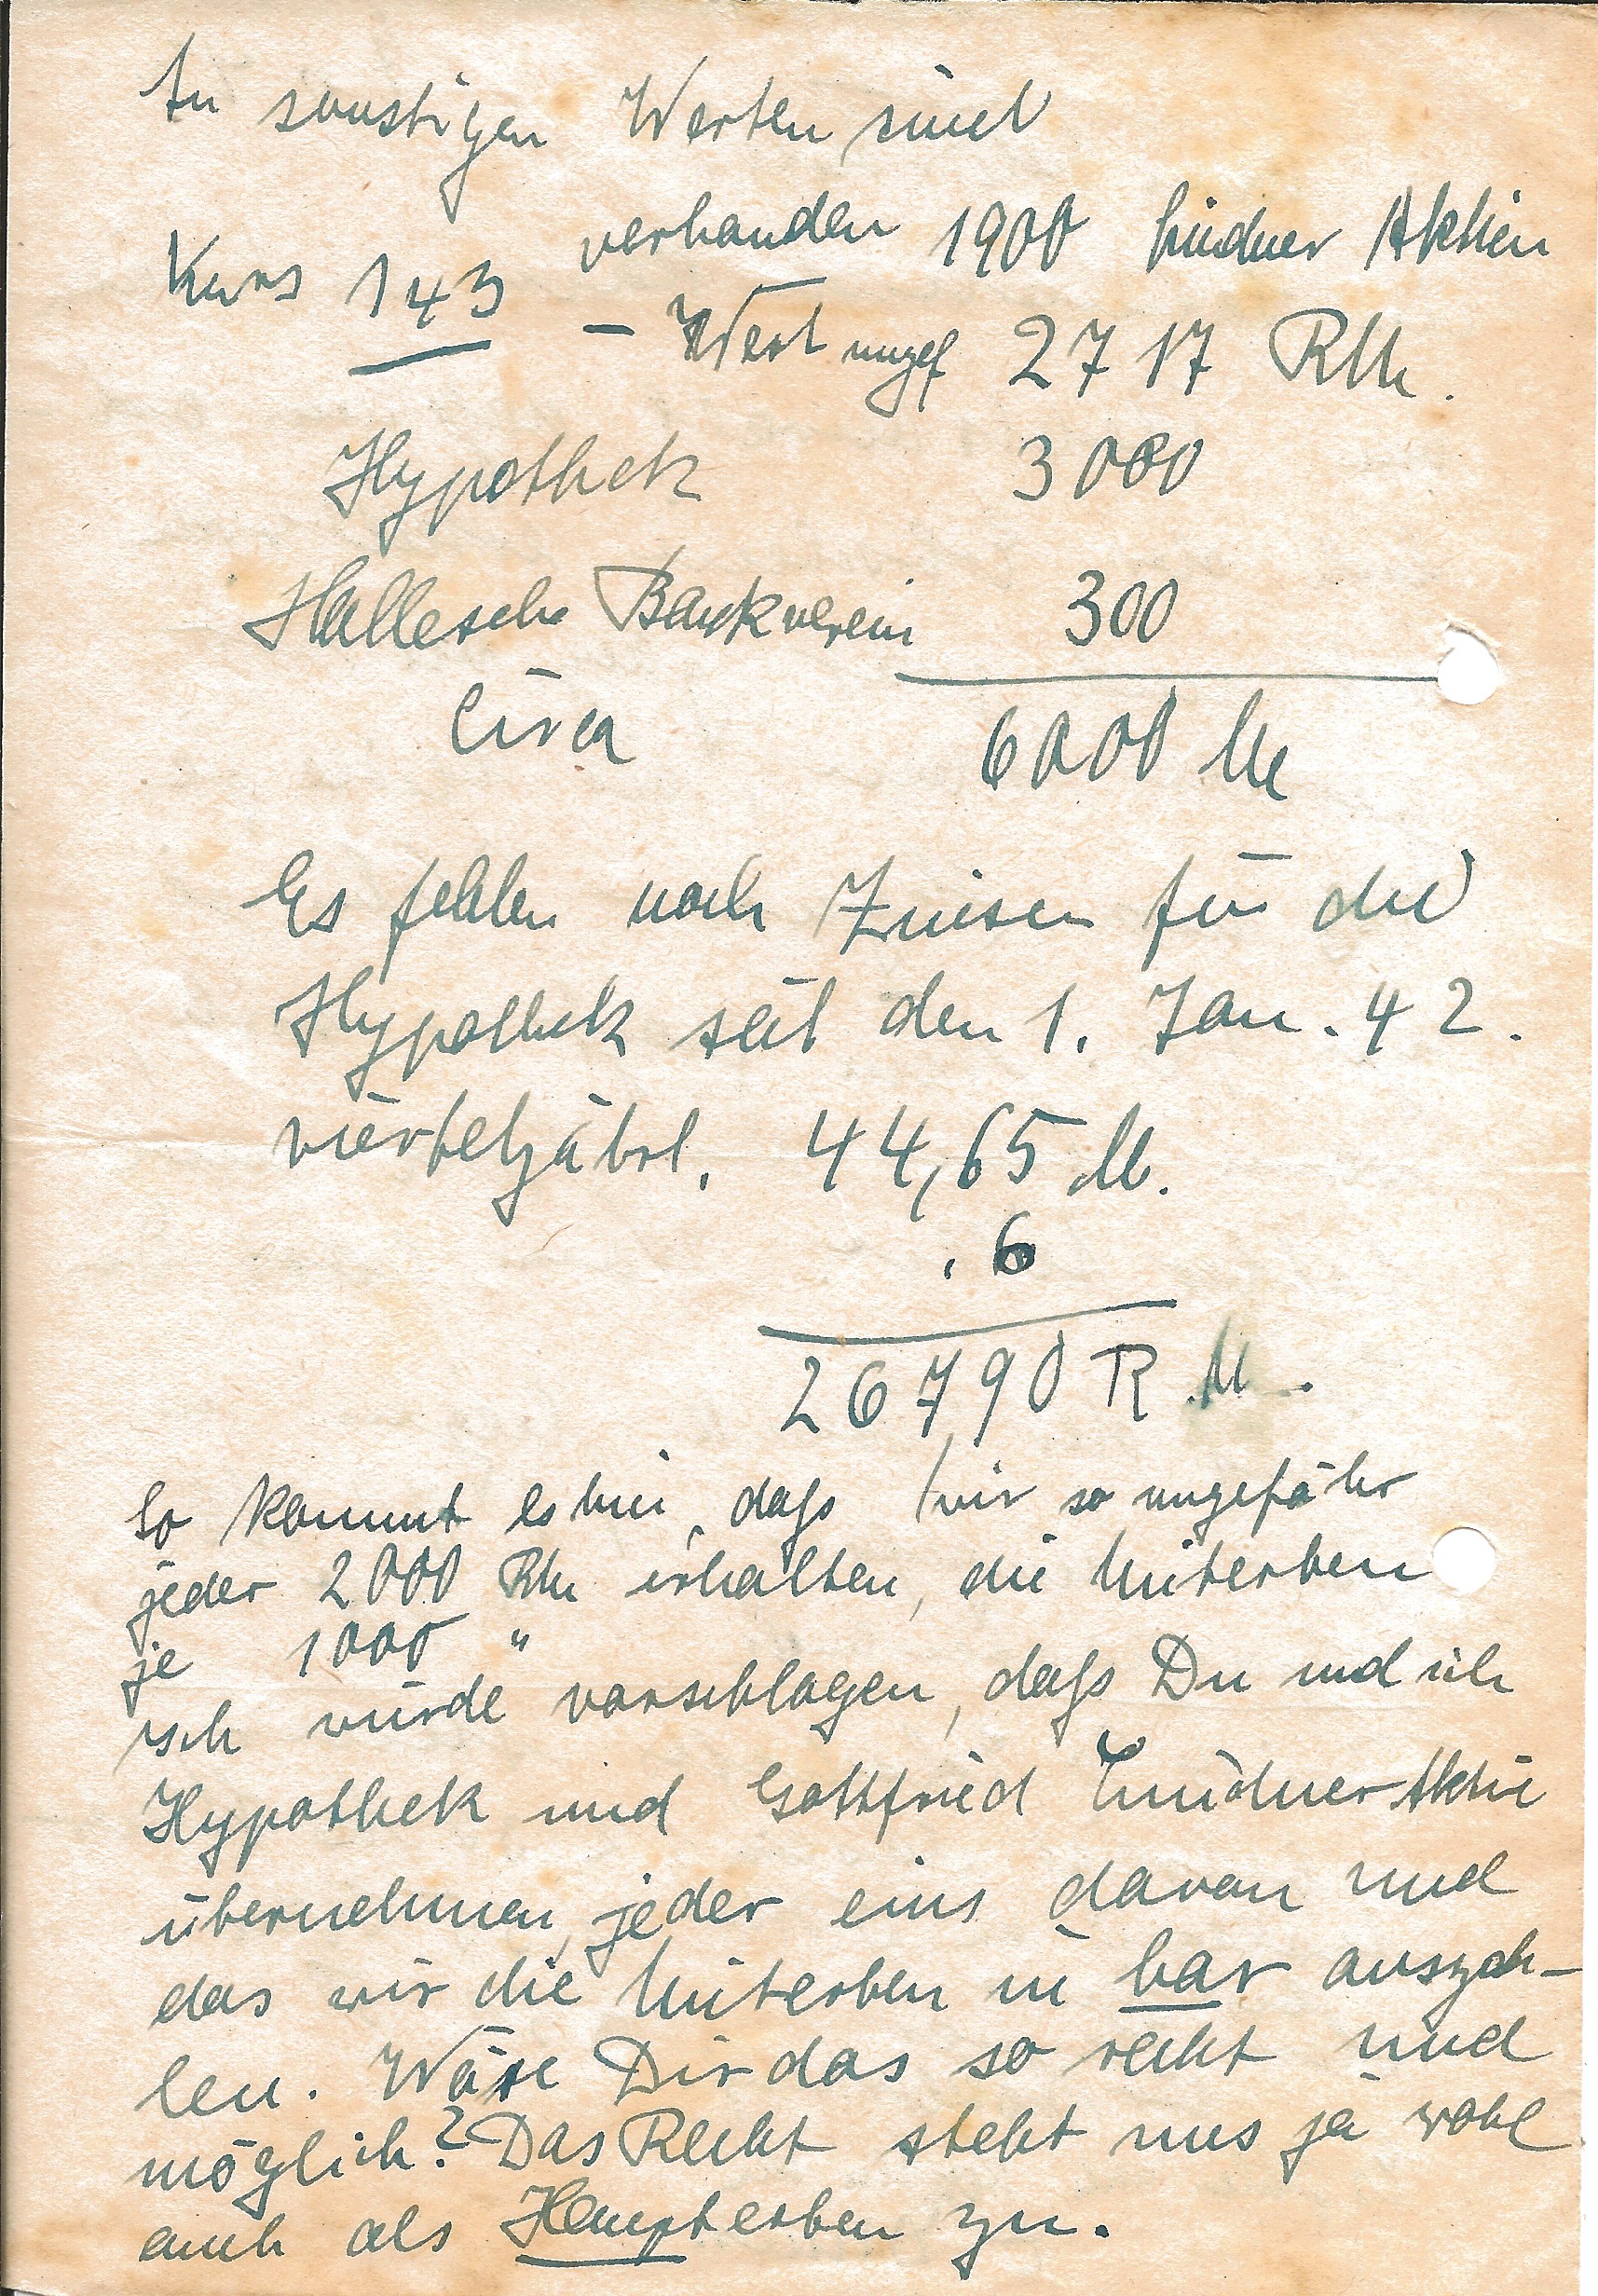 An sonstigen Werten sind
vorhanden 1900 Lindner Aktien
Kurs 143 – Wert ungef 2717 RM.
Hypothek 3000
Hallesche Bankverein 300
Circa 6000 M
Es fehlen noch Zinsen für die
Hypothek seit den 1. Jan. 42.
vierteljährl. 44,65 M.
. 6
26790 R.M.
So kommt es hin, daß wir so ungefähr
jeder 2000 RM erhalten, die Miterben
je 1000 "
Ich würde vorschlagen, daß Du und ich
Hypothek und Gottfried Lindner Aktie
übernehmen, jeder eins davon und
das wir die Miterben in bar auszah-
len. Wäre Dir das so recht und
möglich? Das Recht steht uns ja wohl
auch als Haupterben zu.